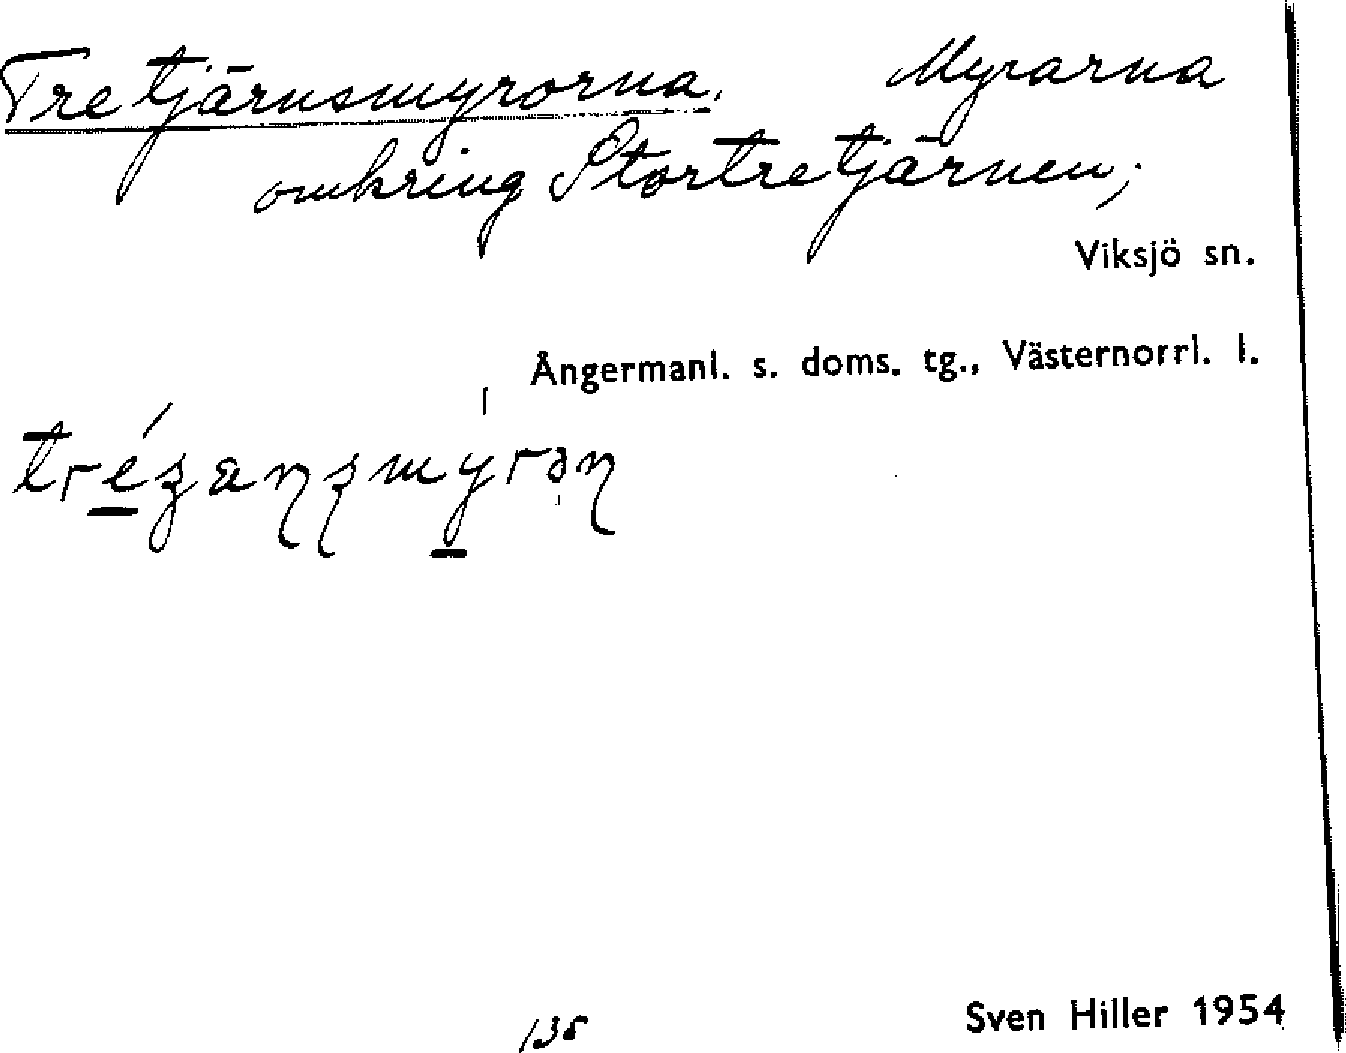 Tretjärnsmyrorna. Myrarna
omkring Stortretjärnen;
Viksjö sn.
Ångermanl. s. doms. tg., Västernorrl. l.
135
Sven Hiller 1954